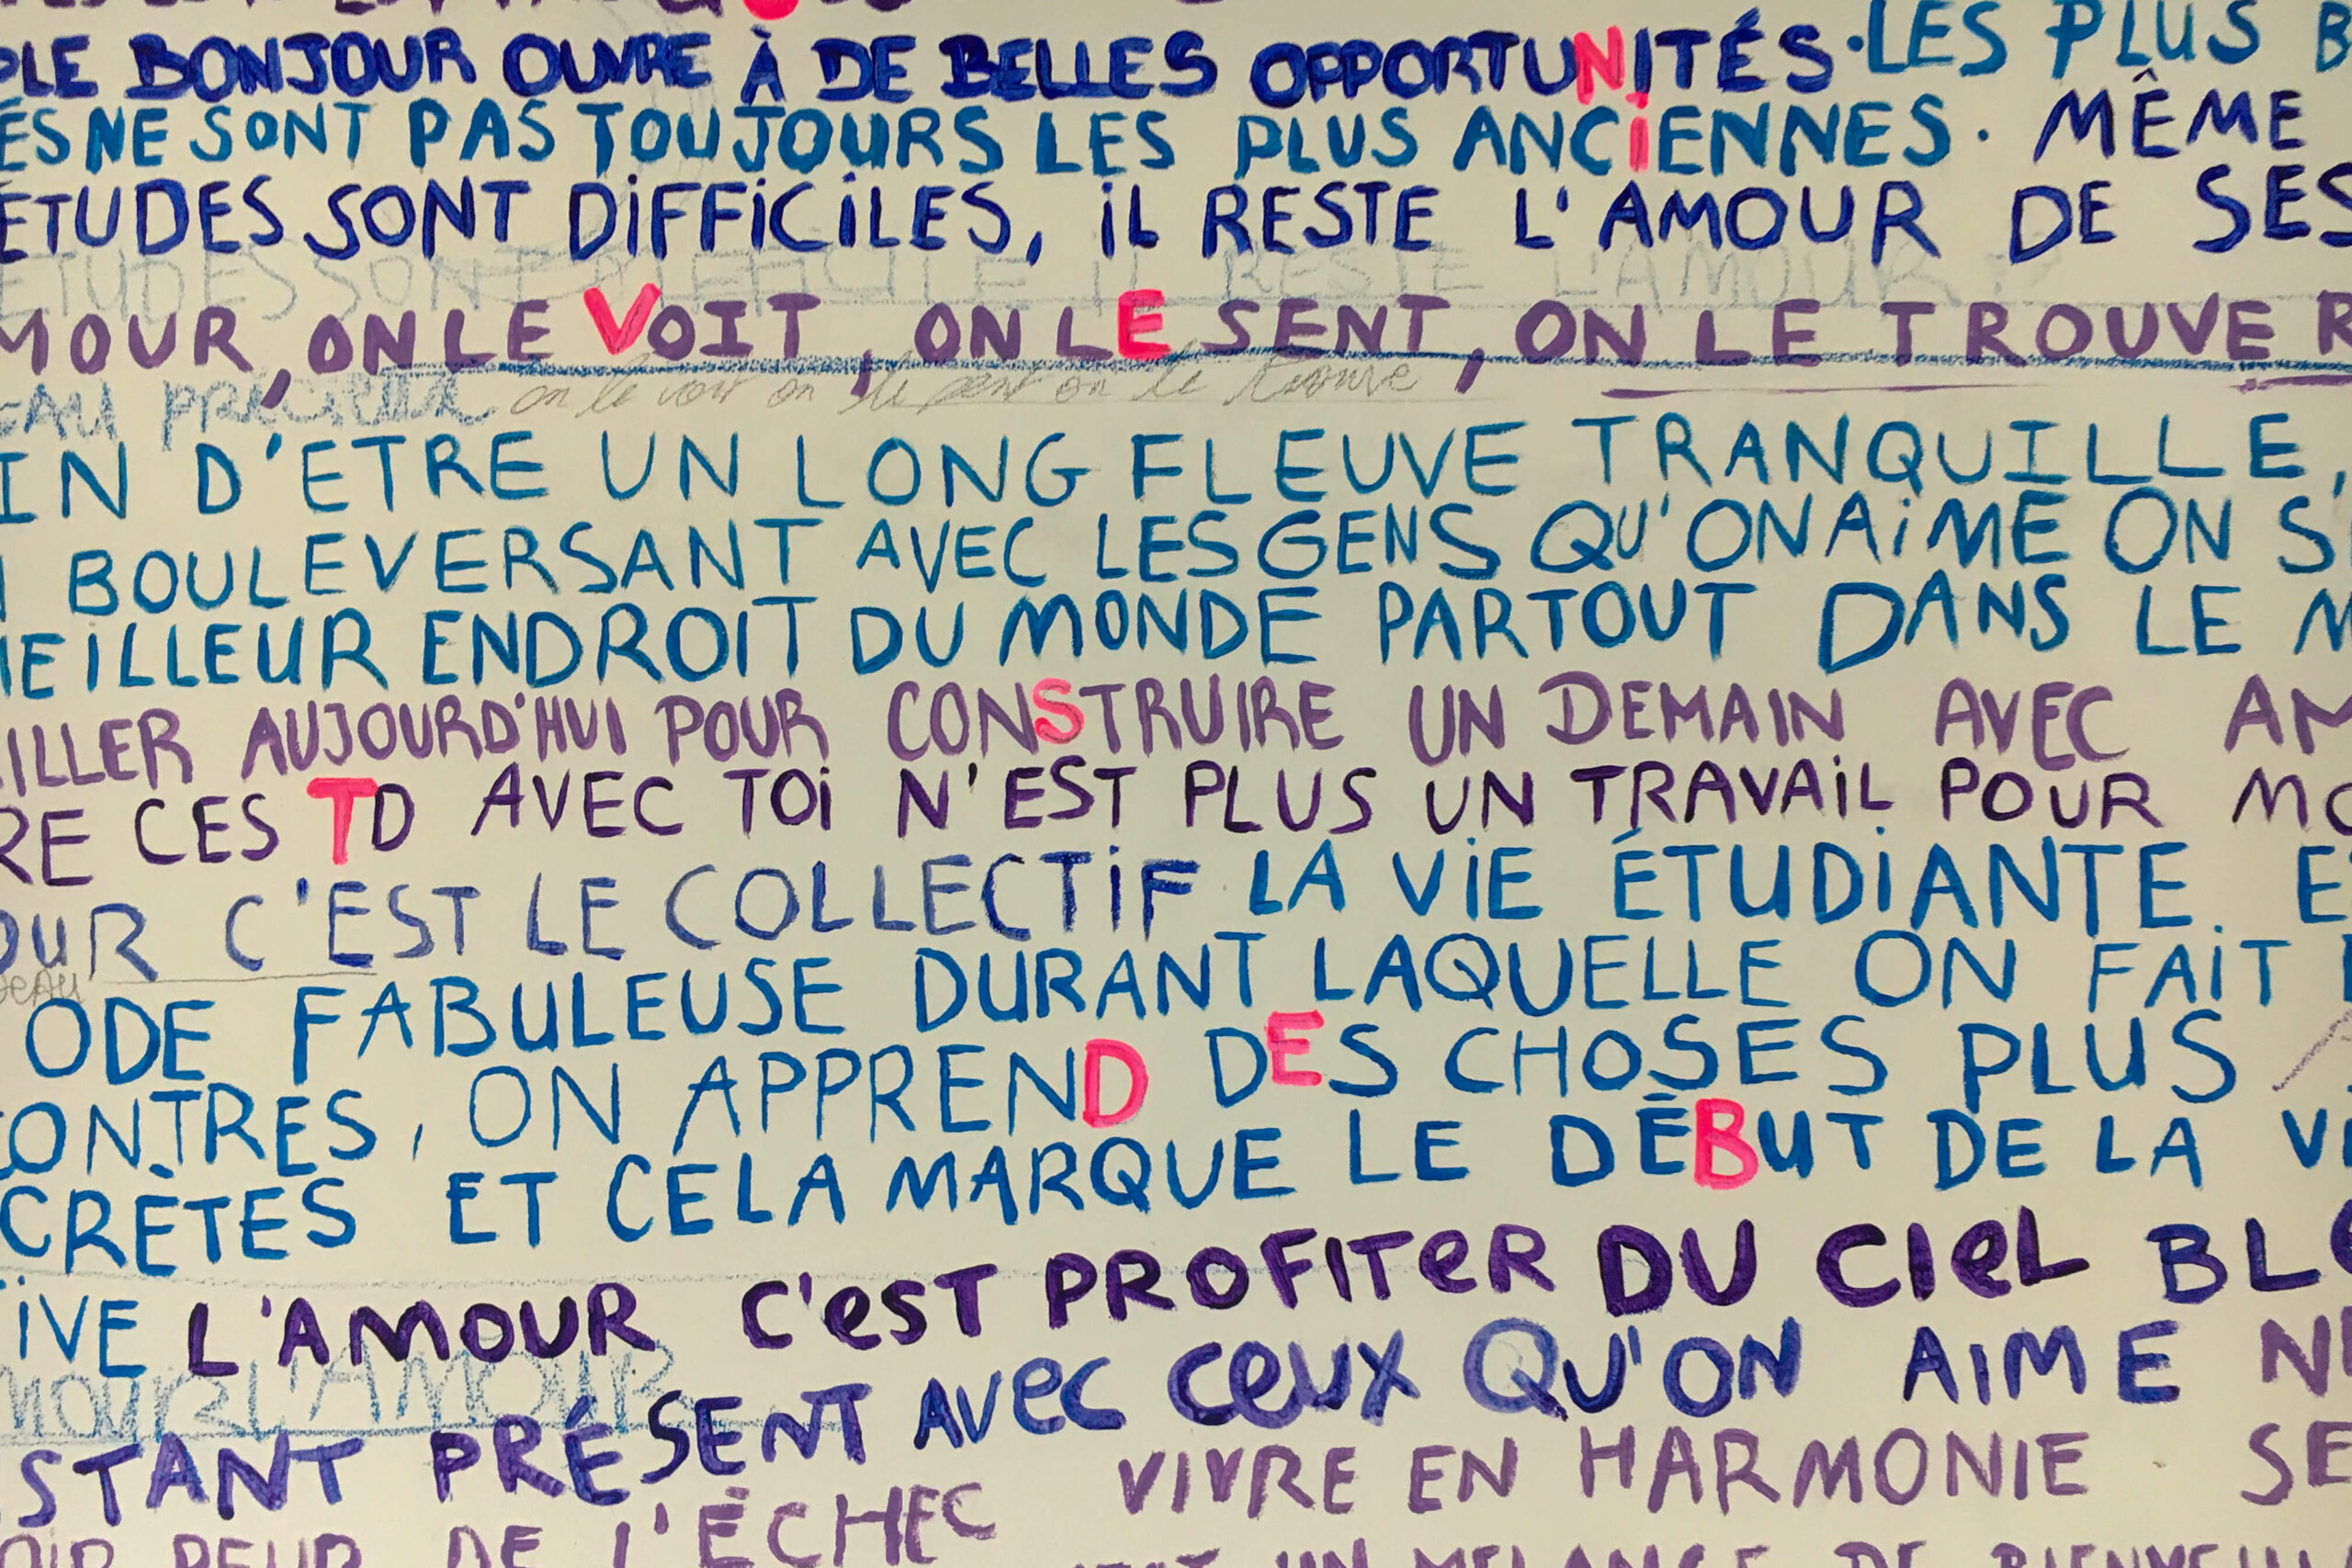 PLE BONJOUR OUVRE À DE BELLES OPPORTUNITÉS. LES PLUS B
ÉS NE SONT PAS TOUJOURS LES PLUS ANCiENNES. MÊME
ÉTUDES SONT DiFFiCiLES, iL RESTE L'AMOUR DE SES
ETUDES SONT DIFFICILE IL RESTE L'AMOUR
MOUR, ON LE VOIT, ON LE SENT, ON LE TROUVE R
EAU précieux on le voit on le sent on le trouve
IN D'ETRE UN LONG FLEUVE TRANQUILLE,
BOULEVERSANT AVEC LES GENS QU'ON AiME ON S
MEILLEUR ENDROIT DU MONDE PARTOUT DANS LE M
AILLER AUJOURD'HUI POUR CONSTRUIRE UN DEMAIN AVEC AM
RE CES TD AVEC TOi N'EST PLUS UN TRAVAiL POUR MO
OUR C'EST LE COLLECTiF LA ViE ÉTUDiANTE E
ODE FABULEUSE DURANT LAQUELLE ON FAiT
CONTRES, ON APPREND DES CHOSES PLUS
CRÈTES ET CELA MARQUE LE DÉBUT DE LA V
iVE L'AMOUR C'eST PROFITeR DU CIeL BL
L'AMOUR
STANT PRÉSENT AVeC CeUX QU'ON AiME N
OIR PEUR DE L'ÉCHEC VIVRE EN HARMONIE. SE
UN MELANGE DE